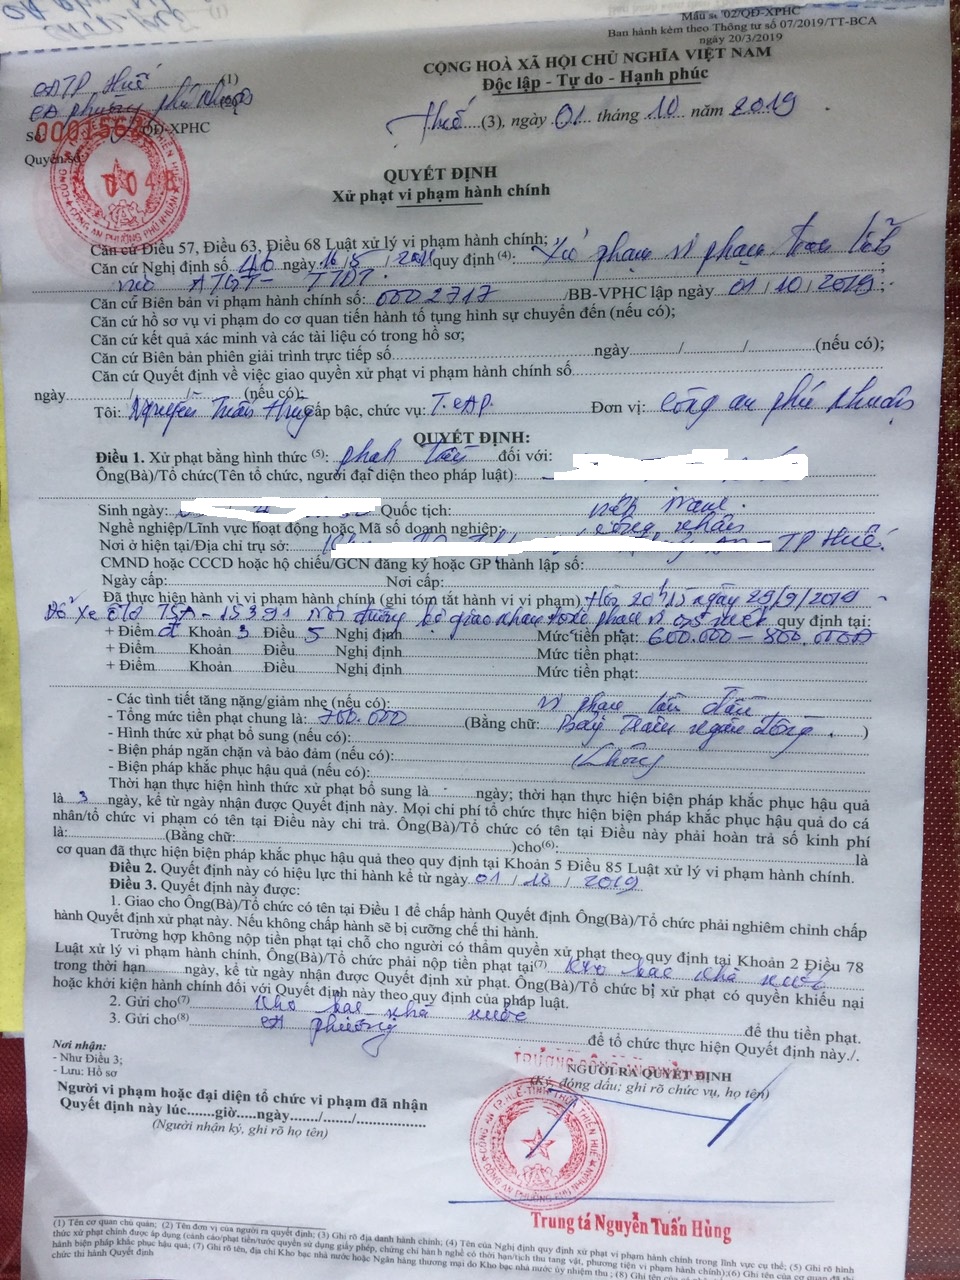 Mẫu số 02/QĐ-XPHC
Ban hành kèm theo Thông tư số 07/2019/TT-BCA
ngày 20/3/2019
CỘNG HOÀ XÃ HỘI CHỦ NGHĨA VIỆT NAM
Độc lập - Tự do - Hạnh phúc
CATP Huế (1)
CA phường Phú Nhuận
Số /QĐ-XPHC
Quyển số
Huế (3), ngày 01 tháng 10 năm 2019
QUYẾT ĐỊNH
Xử phạt vi phạm hành chính
Căn cứ Điều 57, Điều 63, Điều 68 Luật xử lý vi phạm hành chính;
Căn cứ Nghị định số 46 ngày 16/5/ quy định (4): phạm vi phạm trong lĩnh
ATGT- TTĐT
Căn cứ Biên bản vi phạm hành chính số: 0002717 /BB-VPHC lập ngày 01/10/2019;
Căn cứ hồ sơ vụ vi phạm do cơ quan tiến hành tố tụng hình sự chuyển đến (nếu có);
Căn cứ kết quả xác minh và các tài liệu có trong hồ sơ;
Căn cứ Biên bản phiên giải trình trực tiếp số ngày / / (nếu có);
Căn cứ Quyết định về việc giao quyền xử phạt vi phạm hành chính số
ngày / / (nếu có);
Tôi: Nguyễn Tuấn Hùng cấp bậc, chức vụ: T.CAP. Đơn vị: Công an phú nhuận
QUYẾT ĐỊNH:
Điều 1. Xử phạt bằng hình thức (5): phạt tiền đối với:
Ông(Bà)/Tổ chức(Tên tổ chức, người đại diện theo pháp luật):
Sinh ngày: Quốc tịch: Việt Nam
Nghề nghiệp/Lĩnh vực hoạt động hoặc Mã số doanh nghiệp: công nhân
Nơi ở hiện tại/Địa chỉ trụ sở: TP Huế.
CMND hoặc CCCD hoặc hộ chiếu/GCN đăng ký hoặc GP thành lập số:
Ngày cấp: Nơi cấp:
Đã thực hiện hành vi vi phạm hành chính (ghi tóm tắt hành vi vi phạm) Hồi 20h15 ngày 29/9/2019
Đỗ xe ôtô 75A-15391 đường bộ giao nhau quy định tại:
+ Điểm d Khoản 3 Điều 5 Nghị định Mức tiền phạt: 600.000 - 800.000đ
+ Điểm Khoản Điều Nghị định Mức tiền phạt:
+ Điểm Khoản Điều Nghị định Mức tiền phạt:
- Các tình tiết tăng nặng/giảm nhẹ (nếu có): Vi phạm lần đầu
- Tổng mức tiền phạt chung là: 700.000 (Bằng chữ: Bảy trăm ngàn đồng. )
- Hình thức xử phạt bổ sung (nếu có):
- Biện pháp ngăn chặn và bảo đảm (nếu có): Không
- Biện pháp khắc phục hậu quả (nếu có):
Thời hạn thực hiện hình thức xử phạt bổ sung là - ngày; thời hạn thực hiện biện pháp khắc phục hậu quả
là 3 ngày, kể từ ngày nhận được Quyết định này. Mọi chi phí tổ chức thực hiện biện pháp khắc phục hậu quả do cá
nhân/tổ chức vi phạm có tên tại Điều này chi trả. Ông(Bà)/Tổ chức có tên tại Điều này phải hoàn trả số kinh phí
là: (Bằng chữ: )cho(6): là
cơ quan đã thực hiện biện pháp khắc phục hậu quả theo quy định tại Khoản 5 Điều 85 Luật xử lý vi phạm hành chính.
Điều 2. Quyết định này có hiệu lực thi hành kể từ ngày 01/10/2019
Điều 3. Quyết định này được:
1. Giao cho Ông(Bà)/Tổ chức có tên tại Điều 1 để chấp hành Quyết định Ông(Bà)/Tổ chức phải nghiêm chỉnh chấp
hành Quyết định xử phạt này. Nếu không chấp hành sẽ bị cưỡng chế thi hành.
Trường hợp không nộp tiền phạt tại chỗ cho người có thẩm quyền xử phạt theo quy định tại Khoản 2 Điều 78
Luật xử lý vi phạm hành chính, Ông(Bà)/Tổ chức phải nộp tiền phạt tại(7) Kho bạc nhà nước
trong thời hạn ngày, kể từ ngày nhận được Quyết định xử phạt. Ông(Bà)/Tổ chức bị xử phạt có quyền khiếu nại
hoặc khởi kiện hành chính đối với Quyết định này theo quy định của pháp luật.
2. Gửi cho(7) Kho bạc nhà nước để thu tiền phạt.
3. Gửi cho(8) CA phường để tổ chức thực hiện Quyết định này./.
Nơi nhận:
- Như Điều 3;
- Lưu: Hồ sơ
Người vi phạm hoặc đại diện tổ chức vi phạm đã nhận
Quyết định này lúc.......giờ.....ngày....../....../..................
(Người nhận ký, ghi rõ họ tên)
NGƯỜI RA QUYẾT ĐỊNH
(Ký, đóng dấu; ghi rõ chức vụ, họ tên)
Trung tá Nguyễn Tuấn Hùng
(1) Tên cơ quan chủ quản; (2) Tên đơn vị của người ra quyết định; (3) Ghi rõ địa danh hành chính; (4) Tên của Nghị định quy định xử phạt vi phạm hành chính trong lĩnh vực cụ thể; (5) Ghi rõ hình
thức xử phạt chính được áp dụng (cảnh cáo/phạt tiền/tước quyền sử dụng giấy phép, chứng chỉ hành nghề có thời hạn/tịch thu tang vật, phương tiện vi phạm hành chính);(6) Ghi tên của cơ quan đã
hiện biện pháp khắc phục hậu quả; (7) Ghi rõ tên, địa chỉ Kho bạc nhà nước hoặc Ngân hàng thương mại do Kho bạc nhà nước ủy nhiệm thu; (8) Ghi tên của
chức thi hành Quyết định